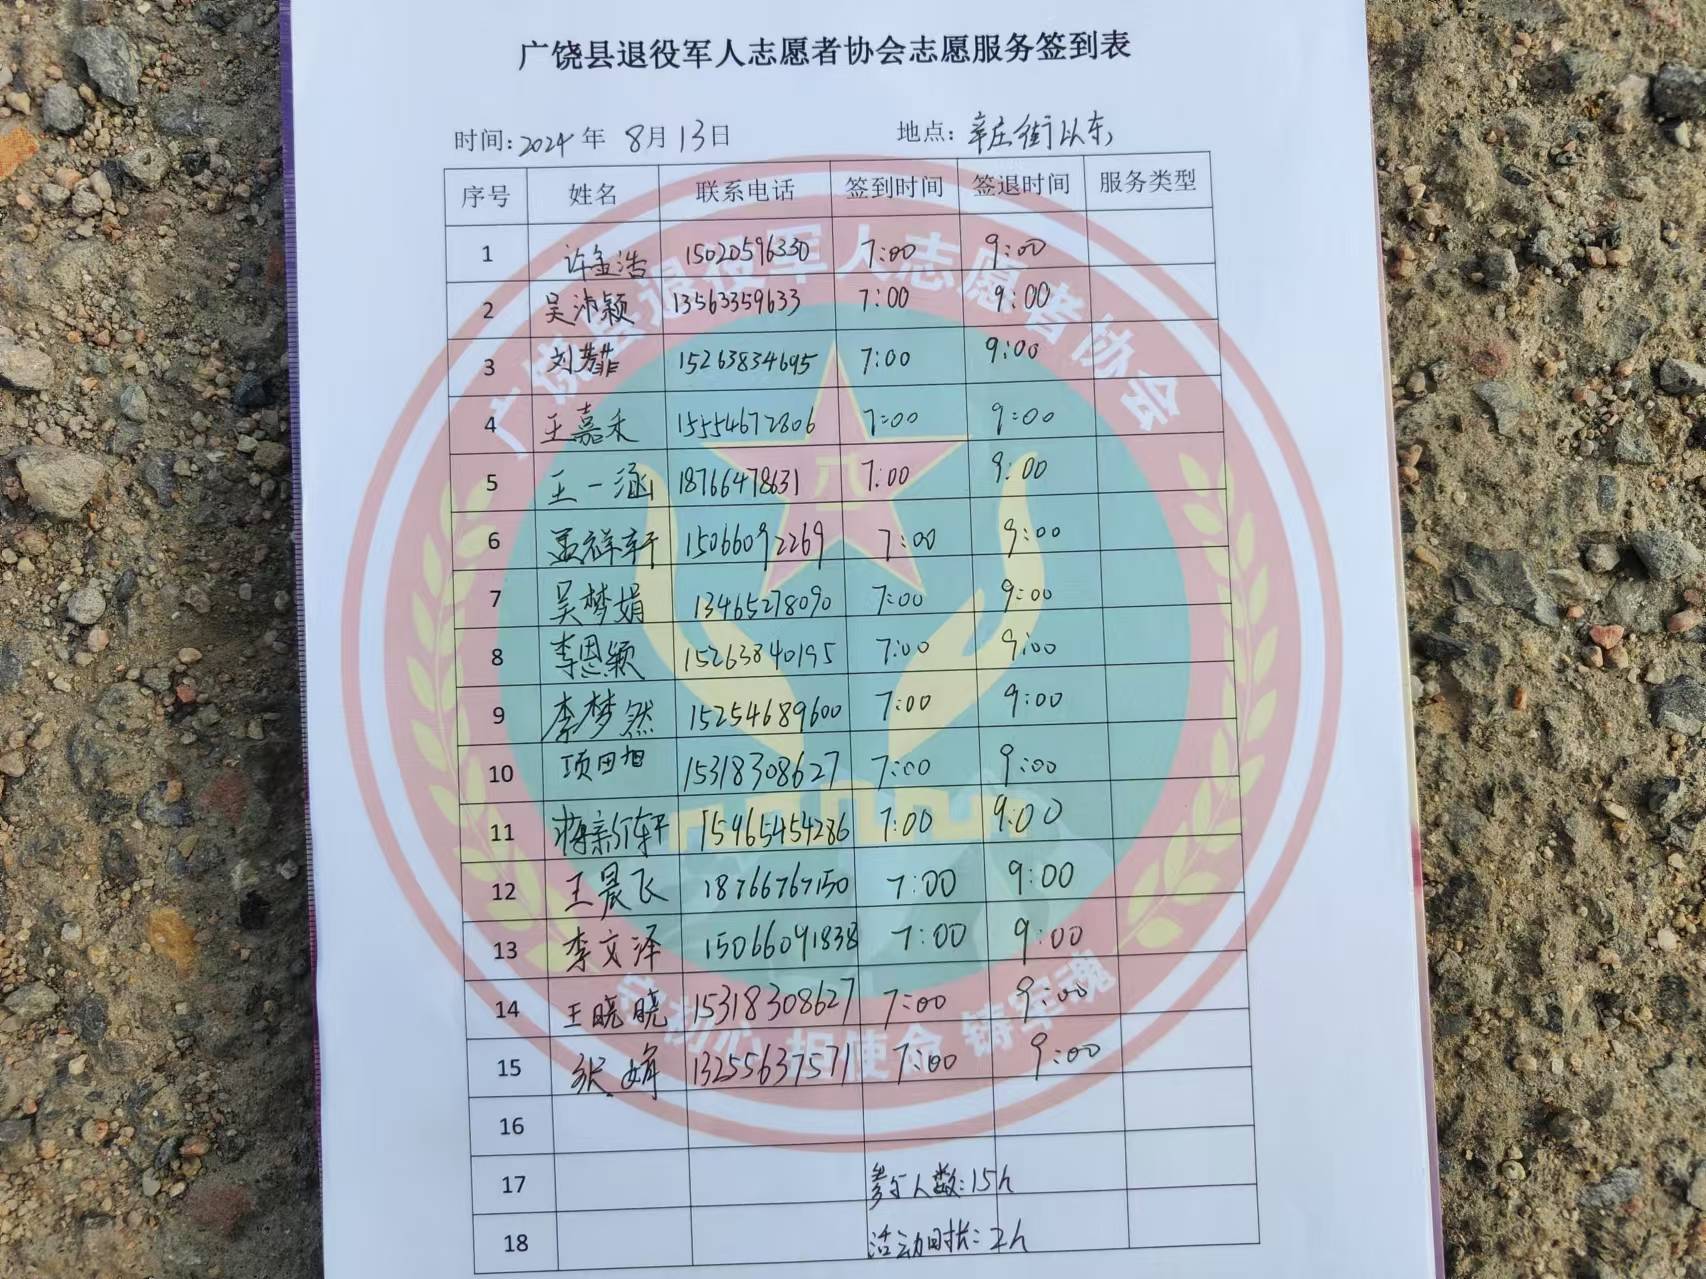 广饶县退役军人志愿者协会志愿服务签到表
时间:2024年 8月13日 地点:辛庄街以东
序号 姓名 联系电话 签到时间 签退时间 服务类型
1 许孟浩 15020596330 7:00 9:00
2 吴沛颖 13563359633 7:00 9:00
3 刘芳菲 15263834695 7:00 9:00
4 王嘉禾 15554672806 7:00 9:00
5 王一涵 18766478631 7:00 9:00
6 孟祥轩 15066092269 7:00 9:00
7 吴梦娟 13465278090 7:00 9:00
8 李恩颖 15263840195 7:00 9:00
9 李梦然 15254689600 7:00 9:00
10 项田旭 15318308627 7:00 9:00
11 蒋新轩 15965454286 7:00 9:00
12 王晨飞 18766767150 7:00 9:00
13 李文泽 15066091838 7:00 9:00
14 王晓晓 15318308627 7:00 9:00
15 张 13255637571 7:00 9:00
16
17 参与人数:15h
18 活动时长:2h
广饶县退役军人志愿者协会
八一
守初心 担使命 铸军魂